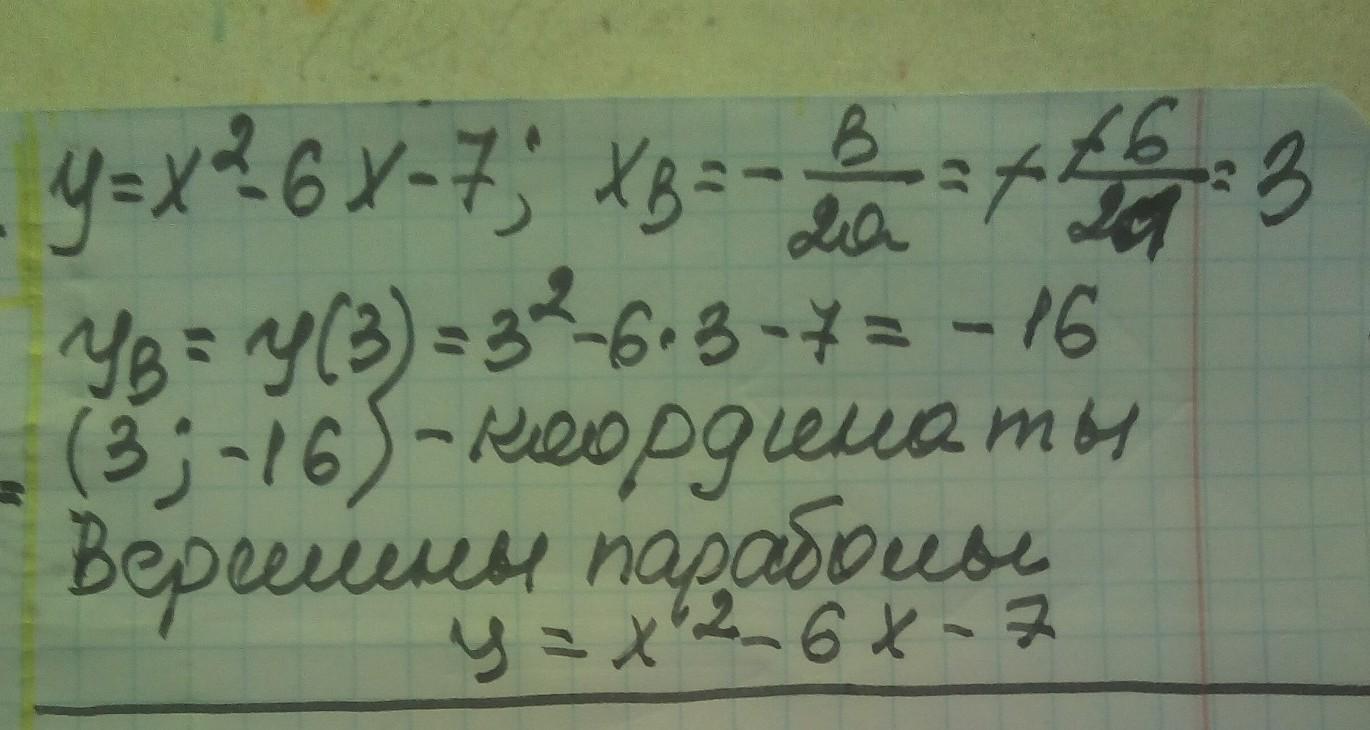 y = x² - 6x - 7; xв = - в/2a = - -6/2·1 = 3
yв = y(3) = 3² - 6·3 - 7 = -16
(3; -16) - координаты
Вершины параболы
y = x² - 6x - 7